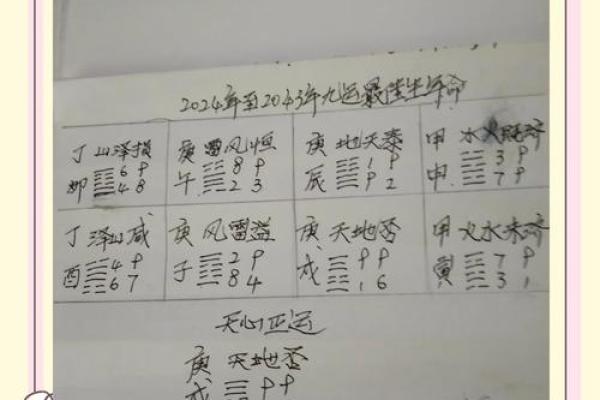 2024年至2043年九运最佳生年命
丁山泽损
卯 6 9
4 8
庚雷风恒
午 8 9
2 3
庚地天泰
辰 1 9
9 2
甲水火既济
申 3 9
7 9
丁泽山咸
酉 4 9
6 7
庚风雷益
子 2 9
8 4
庚天地否
戌 9 9
1 6
甲火水未济
寅 7 9
3 1
天心正运
庚天地否
戌 9 9